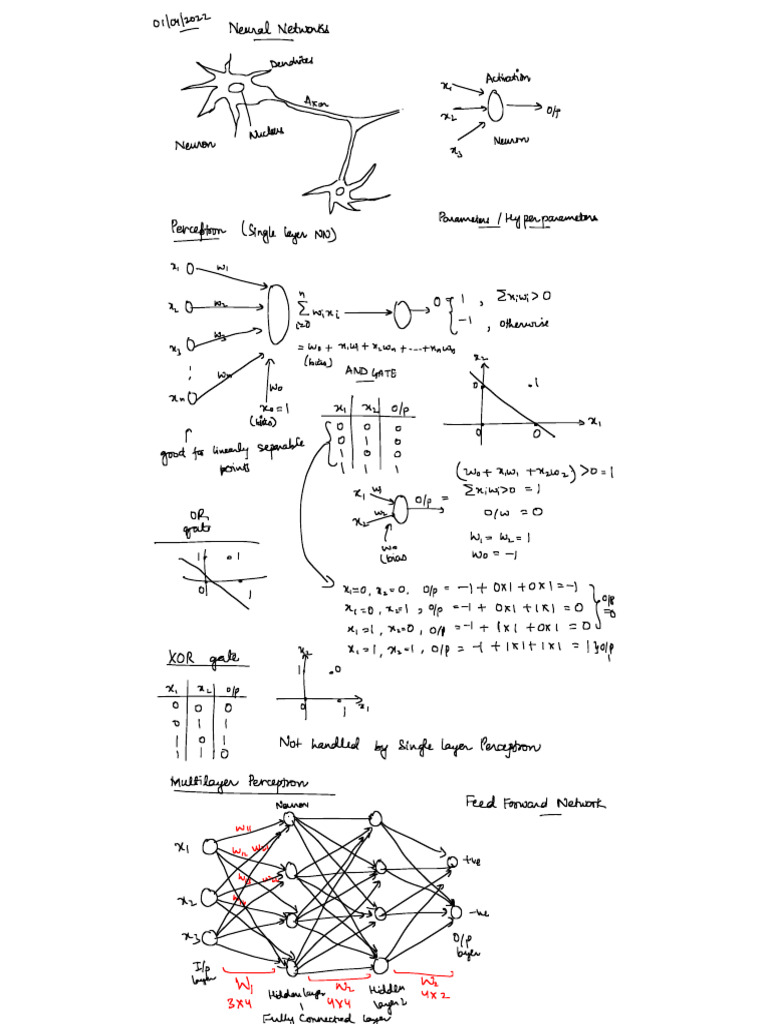 01/04/2022
Neural Networks
Dendrites
Axon
Nucleus
Neuron
Activation
x1
x2
x3
O/p
Neuron
Parameters / Hyperparameters
Perceptron (Single layer NN)
x1 w1
x2 w2
x3 w3
xn wn
w0
x0 = 1
(bias)
n Σ i=0 wixi
0 { 1 , Σxiwi > 0
-1 , otherwise
= w0 + x1w1 + x2wn + .... + xnw0
(bias)
good for linearly separable
points
AND GATE
x1 x2 O/p
0 0 0
0 1 0
1 0 0
1 1 1
x2
0 .1
0 0 x1
(w0 + x1w1 + x2w2) > 0 = 1
Σxiwi>0 = 1
O/w = 0
w1 = w2 = 1
w0 = -1
x1 w1
x2 w2
O/p =
w0
(bias
OR
gate
1 .1
0 1
x1=0, x2=0, O/p = -1 + 0x1 + 0x1 = -1
x1=0, x2=1, O/p = -1 + 0x1 + 1x1 = 0
x1=1, x2=0, O/p = -1 + 1x1 + 0x1 = 0
} O/p
=0
x1=1, x2=1, O/p = -1 + 1x1 + 1x1 = 1 } O/p
1
XOR gate
x1 x2 O/p
0 0 0
0 1 1
1 0 1
1 1 0
x2
1 .0
0 1 x1
Not handled by Single layer Perceptron
Multilayer Perceptron
Feed Forward Network
Neuron
x1
x2
x3
w11
w12
+ve
-ve
O/p
layer
I/p
layer
W1
3x4
Hidden layer
1
W2
4x4
Hidden
layer 2
W3
4x2
Fully Connected layer